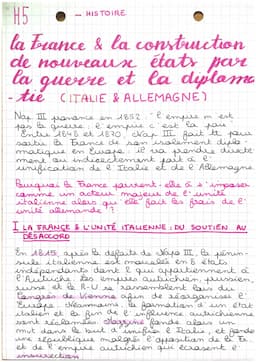 H5 - HISTOIRE
la France & la construction
de nouveaux états par
la guerre et la diploma
-tie (ITALIE & ALLEMAGNE)
Nap III prononce en 1852 "l'empire m'est
par la guerre, l'empire c'est la paix"
Entre 1848 et 1870, Nap III fait tt pour
sortir la France de son isolement diplo-
matique en Europe. Il va prendre directe
ment ou indirectement part à l'
unification de l'Italie et de l'Allemagne.
Pourquoi la France parvient-elle à s'imposer
comme un acteur majeur de l'unité
italienne alors qu'elle fait les frais de l'
unité allemande ?
I LA FRANCE & L'UNITÉ ITALIENNE : DU SOUTIEN AU
DÉSACCORD
En 1815, après la défaite de Nap III, la pénin-
sule italienne est morcelée en 8 états
indépendants dont 1 qui appartiennent à
l'Autriche. Les empires autrichien, prussien,
russe et le R-U se rassemblent lors du
Congrès de Vienne afin de réorganiser l'
Europe. Néanmoins, la formation d'un état
italien et la fin de l'influence autrichienne
sont réclamées. Mazzini fonde alors un
mvt dans le but d'unifier l'Italie, et fonde
une république malgré l'opposition de la Fr
et de l'empire autrichien qui écrasent l'
insurrection